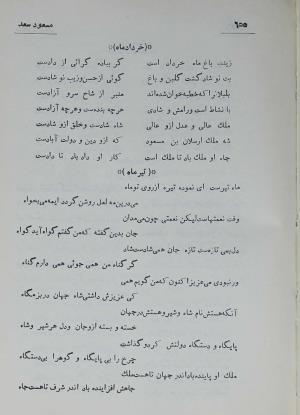 مسعود سعد ۶۵۵
(خرداد ماه)
زینت باغ ماه خرداد است گر بباده گرائی از دادست
بت نو شاد گشت گلبن و باغ گوئی از حسن وزیب نو شادست
بلبلانرا که خطبه خوان شده‌اند منبر از شاخ سرو آزادست
با نشاط است ورامش و شادی هرچه بنده‌ست وهرچه آزادست
ملك عالی و عدل ازو عالی شاه شادست وخلق ازو شادست
شه ملك ارسلان بن مسعود که ازو دین و دولت آبادست
جاه او ملك باد تا ملك است کار او داد باد تا دادست
(تیر ماه)
ماه تیرست ای نموده تیره از روی تو ماه
می درین مه لعل روشن گردد ایمه می بخواه
وقت نعمتهاست لیکن نعمتی چون می مدان
جان بدین گفته که من گفتم گواه آید گواه
دل بمی تازه ست تازه جان همی شادست شاد
گر گناه من همی جوئی همی دارم گناه
ور نبودی می عزیز اکنون که من گویم همی
کی عزیزش داشتی شاه جهان در بزمگاه
آنکه هستش نام شاه و شیر و هستش در جهان
خسته و بسته ازو جان ودل هر شیر وشاه
پایگاه و دستگاه دولتش کردو گذاشت
چرخ را بی پایگاه و کوهرا بی دستگاه
ملك او پاینده باد اندر جهان تا هست ملك
جاهش افزاینده باد اندر شرف تا هست جاه